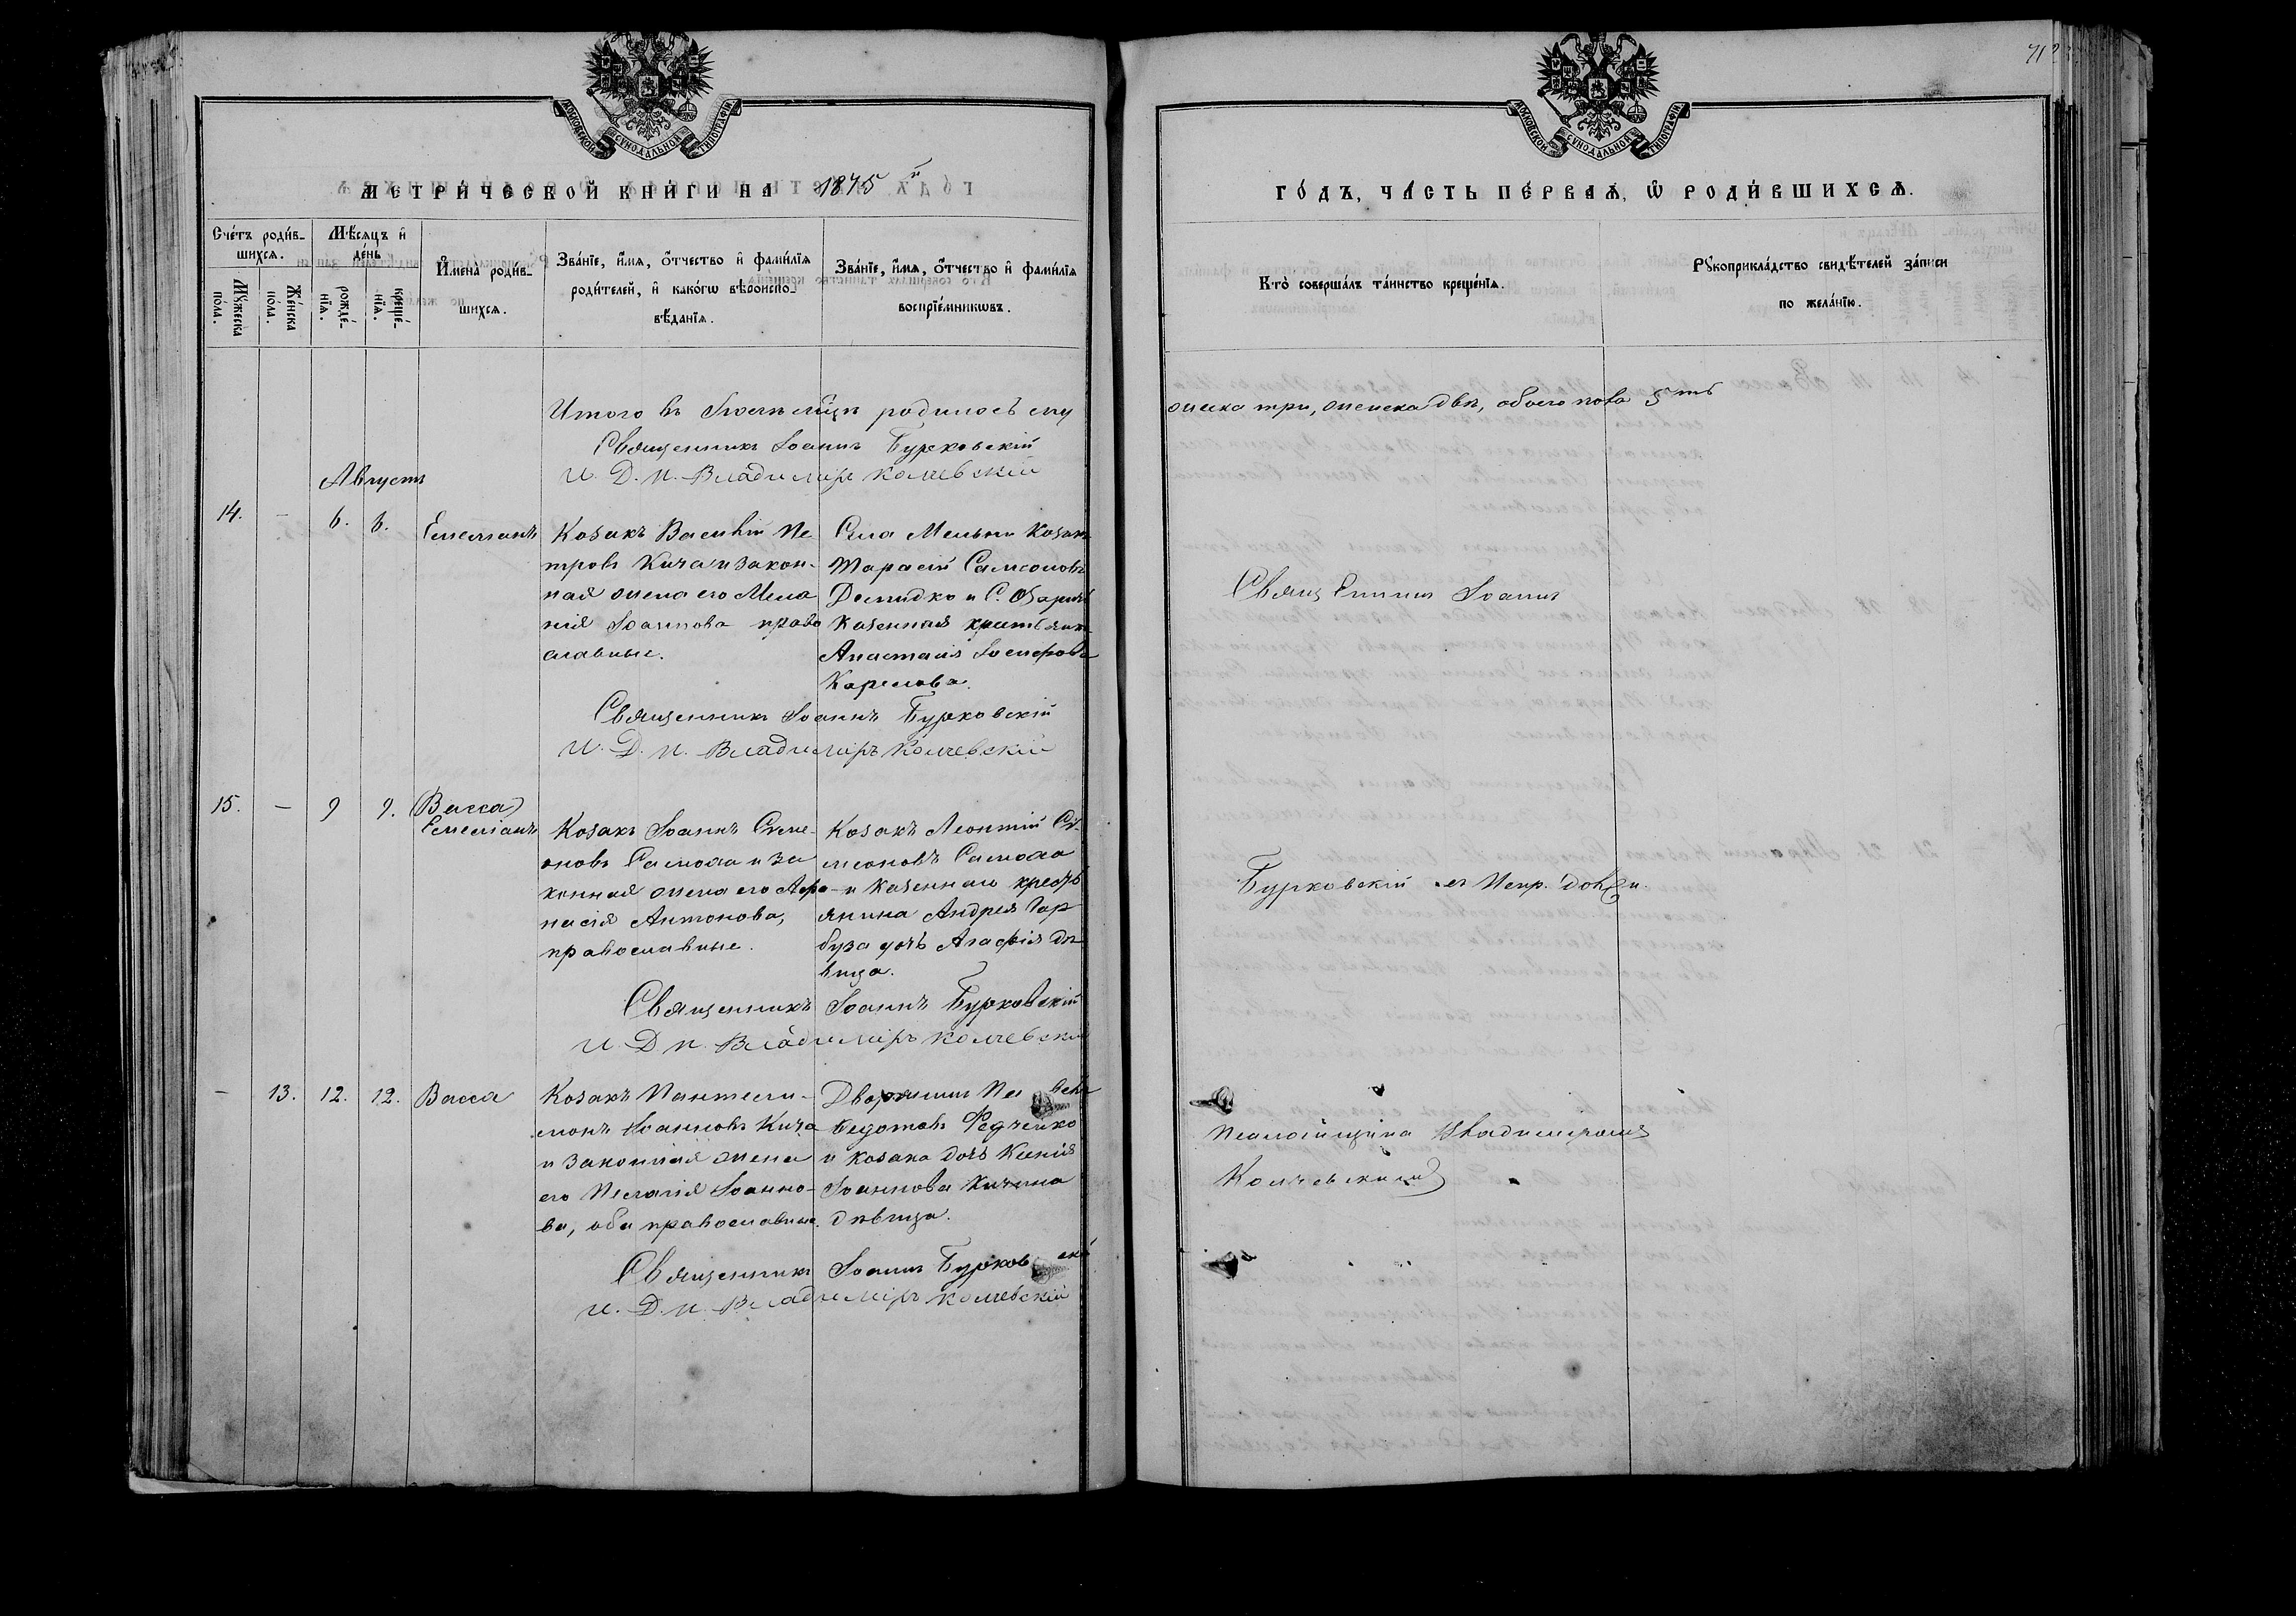 МОСКОВСКОЙ СУНОДАЛЬНОЙ ТИПОГРАФІИ
МЕТРИ́ЧЕСКОЙ КНИ́ГИ НА 1875 й
Сче́тъ роди́в-
шихсѧ.
Мѣ́сяцъ и҆
де́нь
Мꙋ́жеска
по́ла.
Же́нска
по́ла.
рожде́-
нїѧ.
креще́-
нїѧ.
И҆мена̀ роди́в-
шихсѧ.
Зва́нїе, и҆́мѧ, ѻ҆́тчество и҆ фами́лїѧ
роди́телей, и҆ како́гѡ вѣроиспо-
вѣ́данїѧ.
Зва́нїе, и҆́мѧ, ѻ҆́тчество и҆ фами́лїѧ
воспрїе́мникѡвъ.
Итого въ Іюлѣ мѣцѣ родилось му
Священникъ Іоаннъ Бурковскій
И. Д. П. Владиміръ Колчевскій
Августъ
14. - 6. 6. Емеліанъ
Козакъ Василій Пе
тровъ Кича и закон-
ная жена его Мела
нія Іоаннова право
славные.
Села Мельни Козакъ
Тарасій Самсоновъ
Демидко и С.
Казенная крестьянка
Анастасія Іосифова
Карпова.
Священникъ Іоаннъ Бурковскій
И. Д. П. Владиміръ Колчевскій
15. - 9 9. (Васса)
Емеліанъ
Козакъ Іоаннъ Симе-
оновъ Самоха и за
конная жена его Афа-
насія Антонова,
православные.
Козакъ Леонтій Си-
меоновъ Самоха
и казеннаго кресть
янина Андрея Гар
буза дочь Агафія дѣ
вица.
Священникъ Іоаннъ Бурковскій
И. Д. П. Владиміръ Колчевскій
- 13. 12. 12. Васса
Козакъ Пантели-
монъ Іоанновъ Кича
и законная жена
его Пелагія Іоанно-
ва, оба православные.
Дворянинъ
Федотовъ Федченко
и козака дочь Ксенія
Іоаннова Кичина
дѣвица.
Священникъ Іоаннъ Бурковскій
И. Д. П. Владиміръ Колчевскій
МОСКОВСКОЙ СУНОДАЛЬНОЙ ТИПОГРАФІИ
ГО́ДЪ, ЧА́СТЬ ПЕ́РВАѦ, Ѡ҆ РОДИ́ВШИХСѦ.
Кто̀ соверша́лъ та́инство креще́нїѧ.
Рꙋкоприкла́дство свидѣ́телей за́писи
по жела́нїю.
жеска три, женска двѣ, обоего пола 5ть
Священникъ Іоаннъ
Бурковскій съ Испр. долж. п.
Псаломщика Владиміромъ
Колчевскимъ